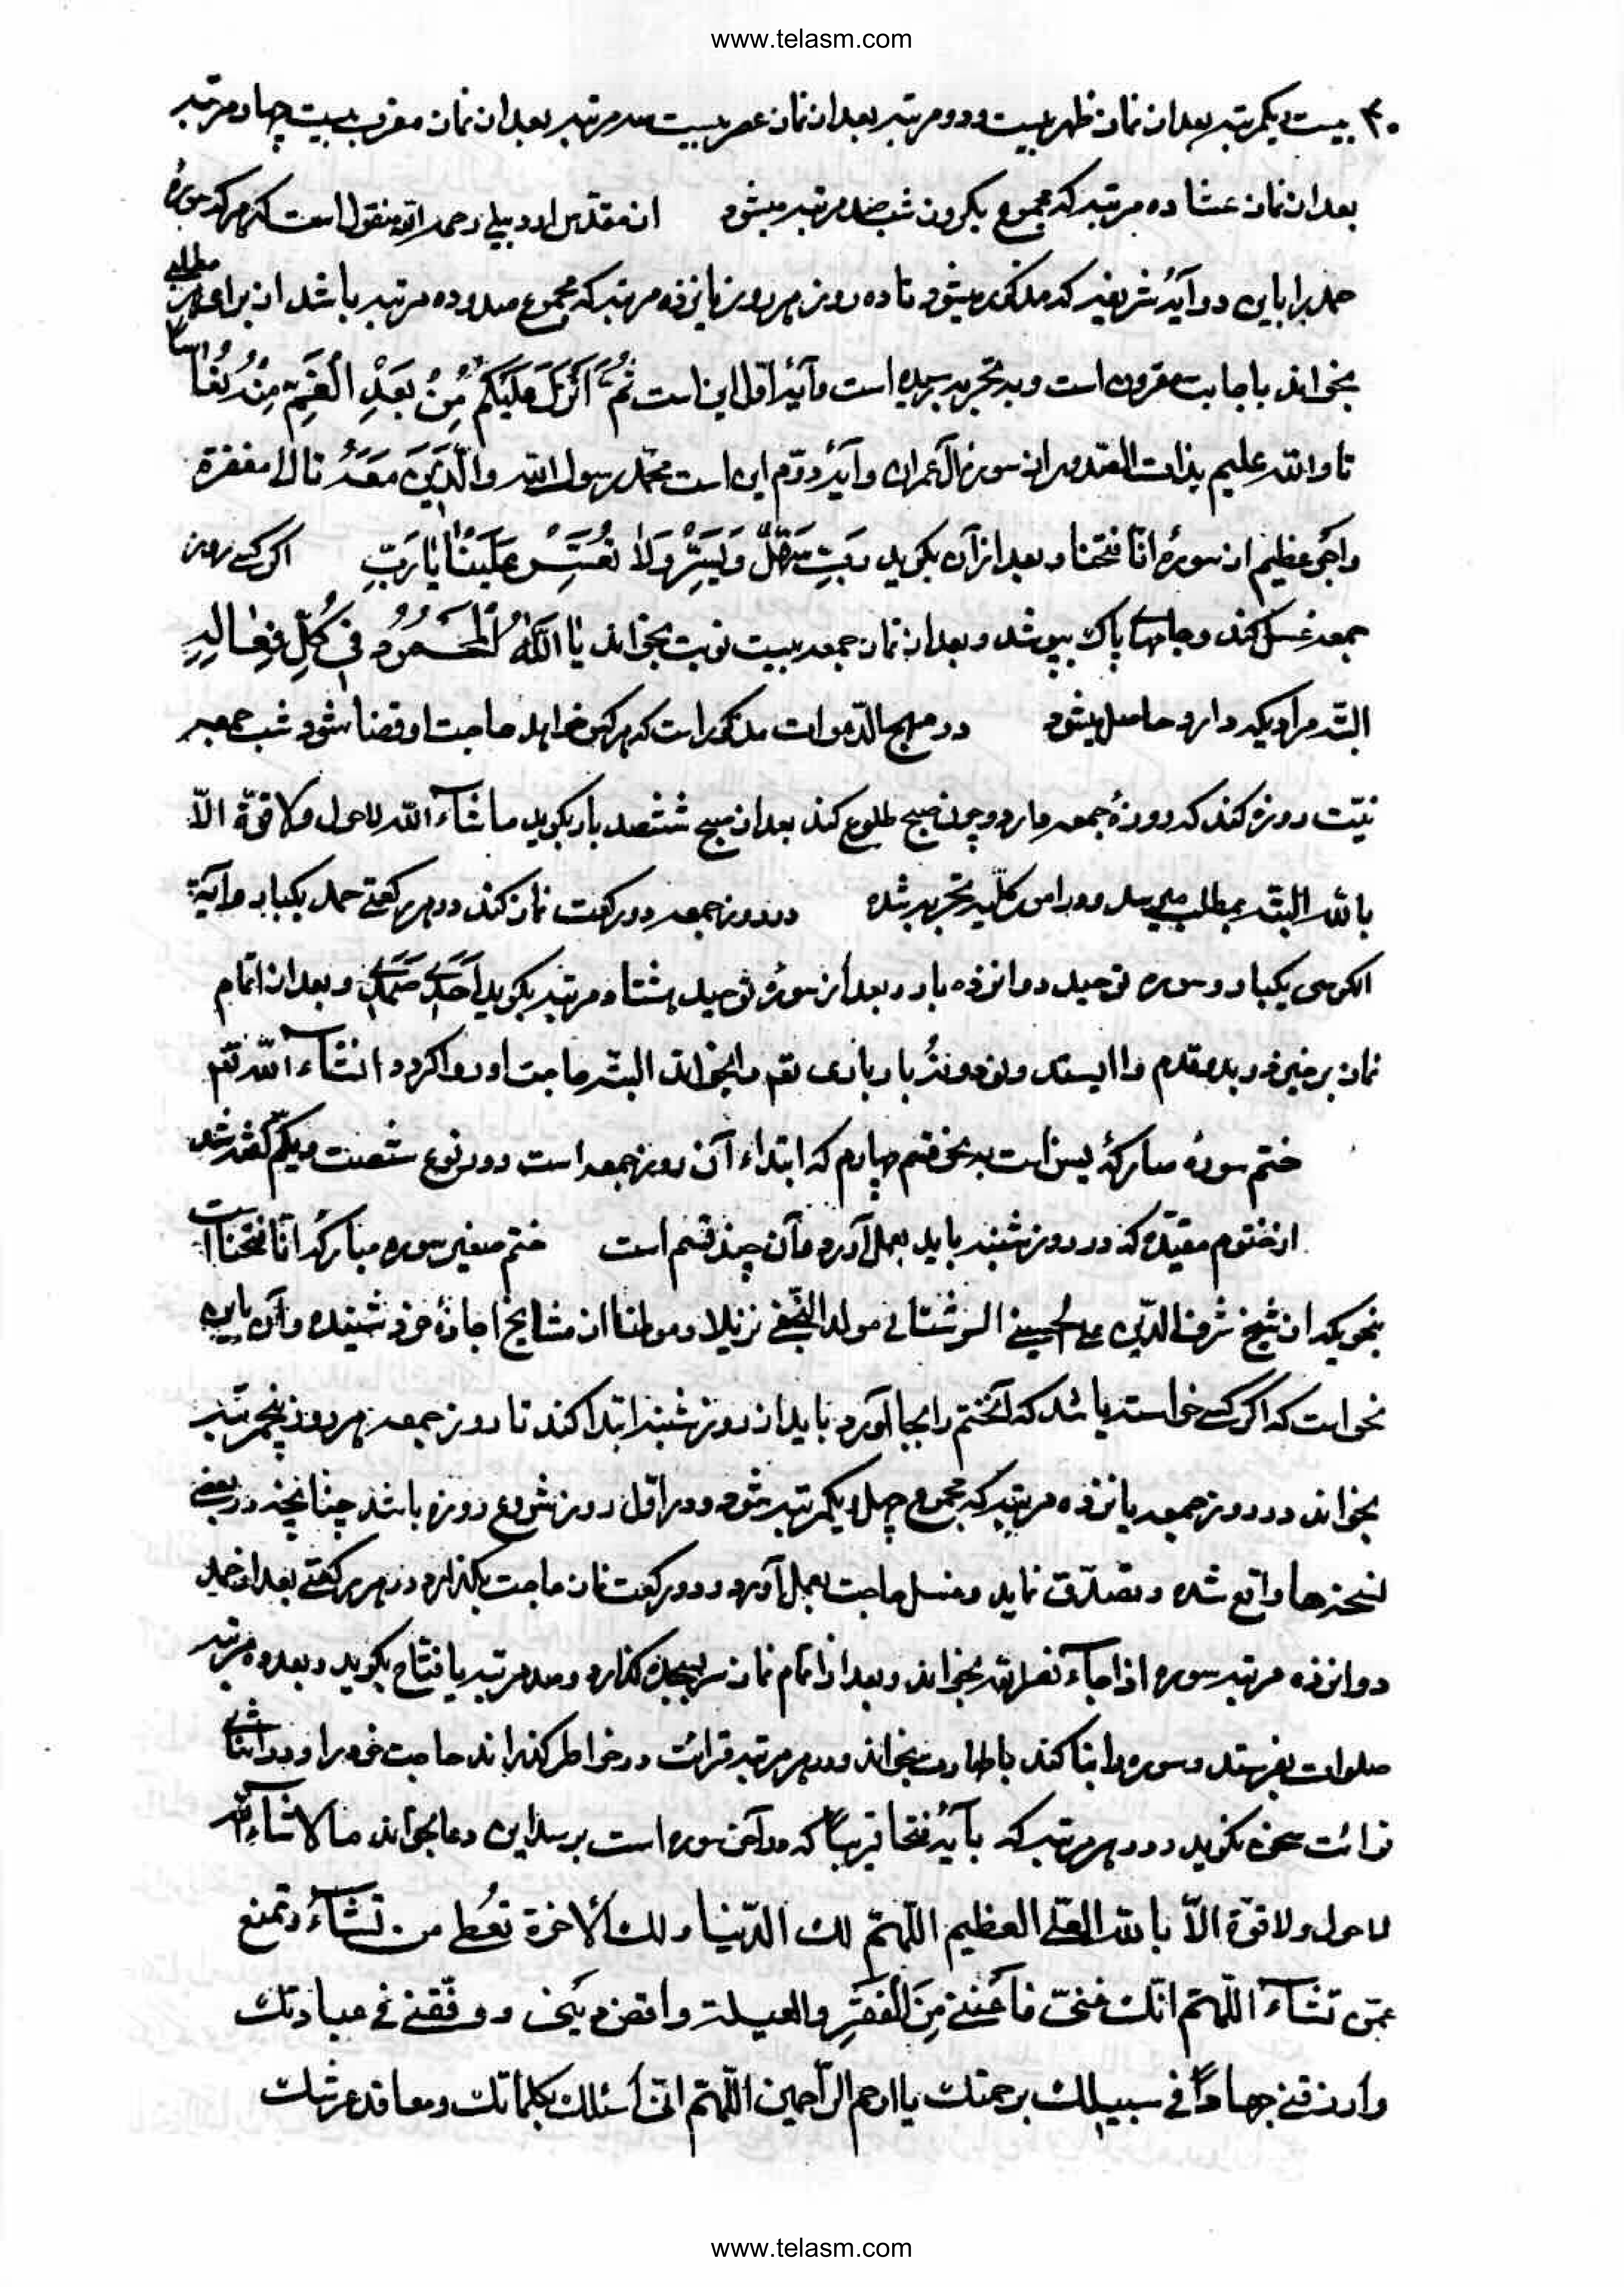 www.telasm.com
۳۰ بیست و یکمرتبه بعد از نماز ظهر بیست و دو مرتبه بعد از نماز عصر بیست سه مرتبه بعد از نماز مغرب بیست چهار مرتبه
بعد از نماز عشا ده مرتبه که مجموع یکروز و شب صد مرتبه میشود از مقدس اردبیلی رحمه الله منقول است که هر که سورهٔ
حمد را با این دو آیهٔ شریفه که مذکور میشود تا ده روز هر روز یانزده مرتبه که مجموع صد و ده مرتبه باشد از برای مطالب
بخواند باجابت مقرون است و بتجربه رسیده است و آیهٔ اول این است ثُمَّ اَنْزَلَ عَلَیْکُمْ مِنْ بَعْدِ الْغَمِّ اَمَنَةً نُعَاسًا
تا والله علیم بذات الصدور از سورهٔ آل عمران و آیهٔ دوّم این است محمّد رسول الله وَالَّذینَ مَعَهُ تا الا مغفرة
و اجرًا عظیم از سورهٔ انّا فتحنا و بعد از آن بگوید رَبِّ سَهِّلْ وَ یَسِّرْ وَلٰا تُعَسِّرْ عَلَیْنٰا یٰا رَبِّ اگر کسے روز
جمعه غسل کند و جامهٔ پاک بپوشد و بعد از نماز جمعه بیست نوبت بخواند یٰا اَللّٰهُ الْمَحْمُودُ فی کُلِّ فِعٰالِهِ
البتّه مرادیکه دارد حاصل میشود در منهج الدّعوات مذکور است که هر کس خواهد حاجت او قضا شود شب جمعه
نیّت روزه کند که روزهٔ جمعه دارد و چون صبح طلوع کند بعد از صبح ششصد بار بگوید ما شآء الله لا حول ولا قوّة الّا
بالله البتّه بمطلب میرسد و در امور کلّیه تجربه شده در روز جمعه دو رکعت نماز کند در هر رکعتے حمد یکبار و آیة
الکرسی یکبار و سوره توحید دوانزده بار و بعد از سورهٔ توحید هشتاد مرتبه بگوید اَحَدٌ صَمَدٌ و بعد از اتمام
نماز برخیزد و بده قدم وا ایستد و نود و نُه بار باری تعم را بخواند البتّه حاجت او روا گردد انشآء الله تعم
ختم سورهٔ مبارکهٔ یس است به نحو قسم چهارم که ابتداء آن روز جمعه است و در نوع شصت و یکم گفته شد
از ختوم مقیّده که در روز شنبه باید بعمل آورد و آن چند قسم است ختم صغیر سوره مبارکهٔ انّا فتحنا است
بنحویکه از شیخ شرف الدّین علی الحسینے الشوشتانی مولدا النّجفے نزیلا و موطنا از مشایخ اجازهٔ خود شنیده و آن باین
نحو است که اگر کسے خواسته باشد که آن ختم را بجا آورد باید از روز شنبه ابتدا کند تا روز جمعه هر روز پنج مرتبه
بخواند و در روز جمعه یانزده مرتبه که مجموع چهل و یکمرتبه شود و در اوّل روز شروع روزه باشد چنانچه در بعضے
نسخه ها واقع شده و تصدّق نماید و غسل حاجت بعمل آورد و دو رکعت نماز حاجت بگذارد در هر رکعتے بعد از حمد
دوانزده مرتبه سوره اذا جآء نصر الله بخواند و بعد از اتمام نماز سر بسجده گذارد و صد مرتبه یا فتّاح بگوید و بعد ده مرتبه
صلوات بفرستد و سوره را ابتدا کند با طهارت بخواند و در هر مرتبه قرائت در خواطر گذراند حاجت خود را و در اثناے
قرائت سخن نگوید و در هر مرتبه که بآیهٔ فتحا قریباً که در آخر سوره است برسد این دعا بخواند ما لا شآء الله
لا حول ولا قوّة الّا بالله العلی العظیم اللّهمّ لك الدّنیا و لك الأخرة تُعطی من تشآء و تمنع
عمّن تشآء اللّهمّ انّك غنیّ فأغننے مِنَ الْفَقْرِ والعیلة و اقض دینی و وفّقنے فی عبادتك
و ارزقنے جهاداً فی سبیلك برحمتك یا ارحم الرّاحمین اللّهمّ انّی أسئلك بکلماتك و معاقد عرشك
www.telasm.com